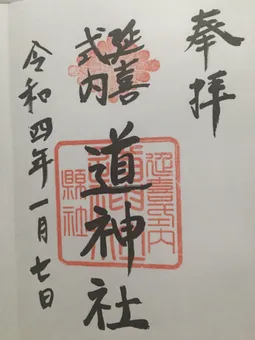 奉拝
延喜
式内
道神社
令和四年一月七日
延喜式内
縣社